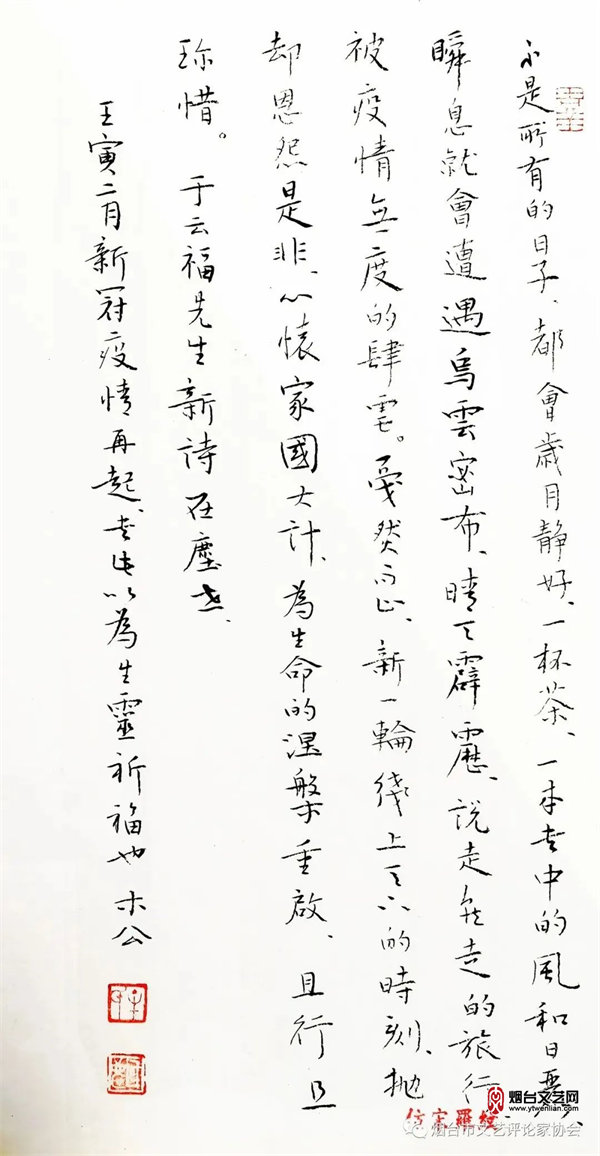 不是所有的日子、都會歲月静好、一杯茶、一本书中的風和日麗、
瞬息就會遭遇烏雲密布、晴天霹靂、説走就走的旅行
被疫情無度的肆虐。戛然而止、新一輪綫上天下的時刻、抛
却恩怨是非、心懷家國大计、為生命的涅槃重啟、且行且
珍惜。 于云福先生新詩在塵世、
壬寅二月新冠疫情再起、书此以為生靈祈福也 木公
仿宋羅紋
烟台文艺网
www.ytwenlian.com
烟台市文艺评论家协会